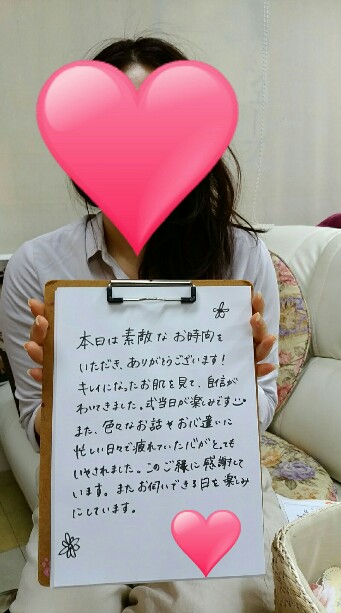 本日は素敵なお時間を
いただき、ありがとうございます!
キレイになったお肌を見て、自信が
わいてきました。式当日が楽しみです
また、色々なお話やお心遣いに
忙しい日々で疲れていた心がとっても
いやされました。このご縁に感謝して
います。またお伺いできる日を楽しみ
にしています。